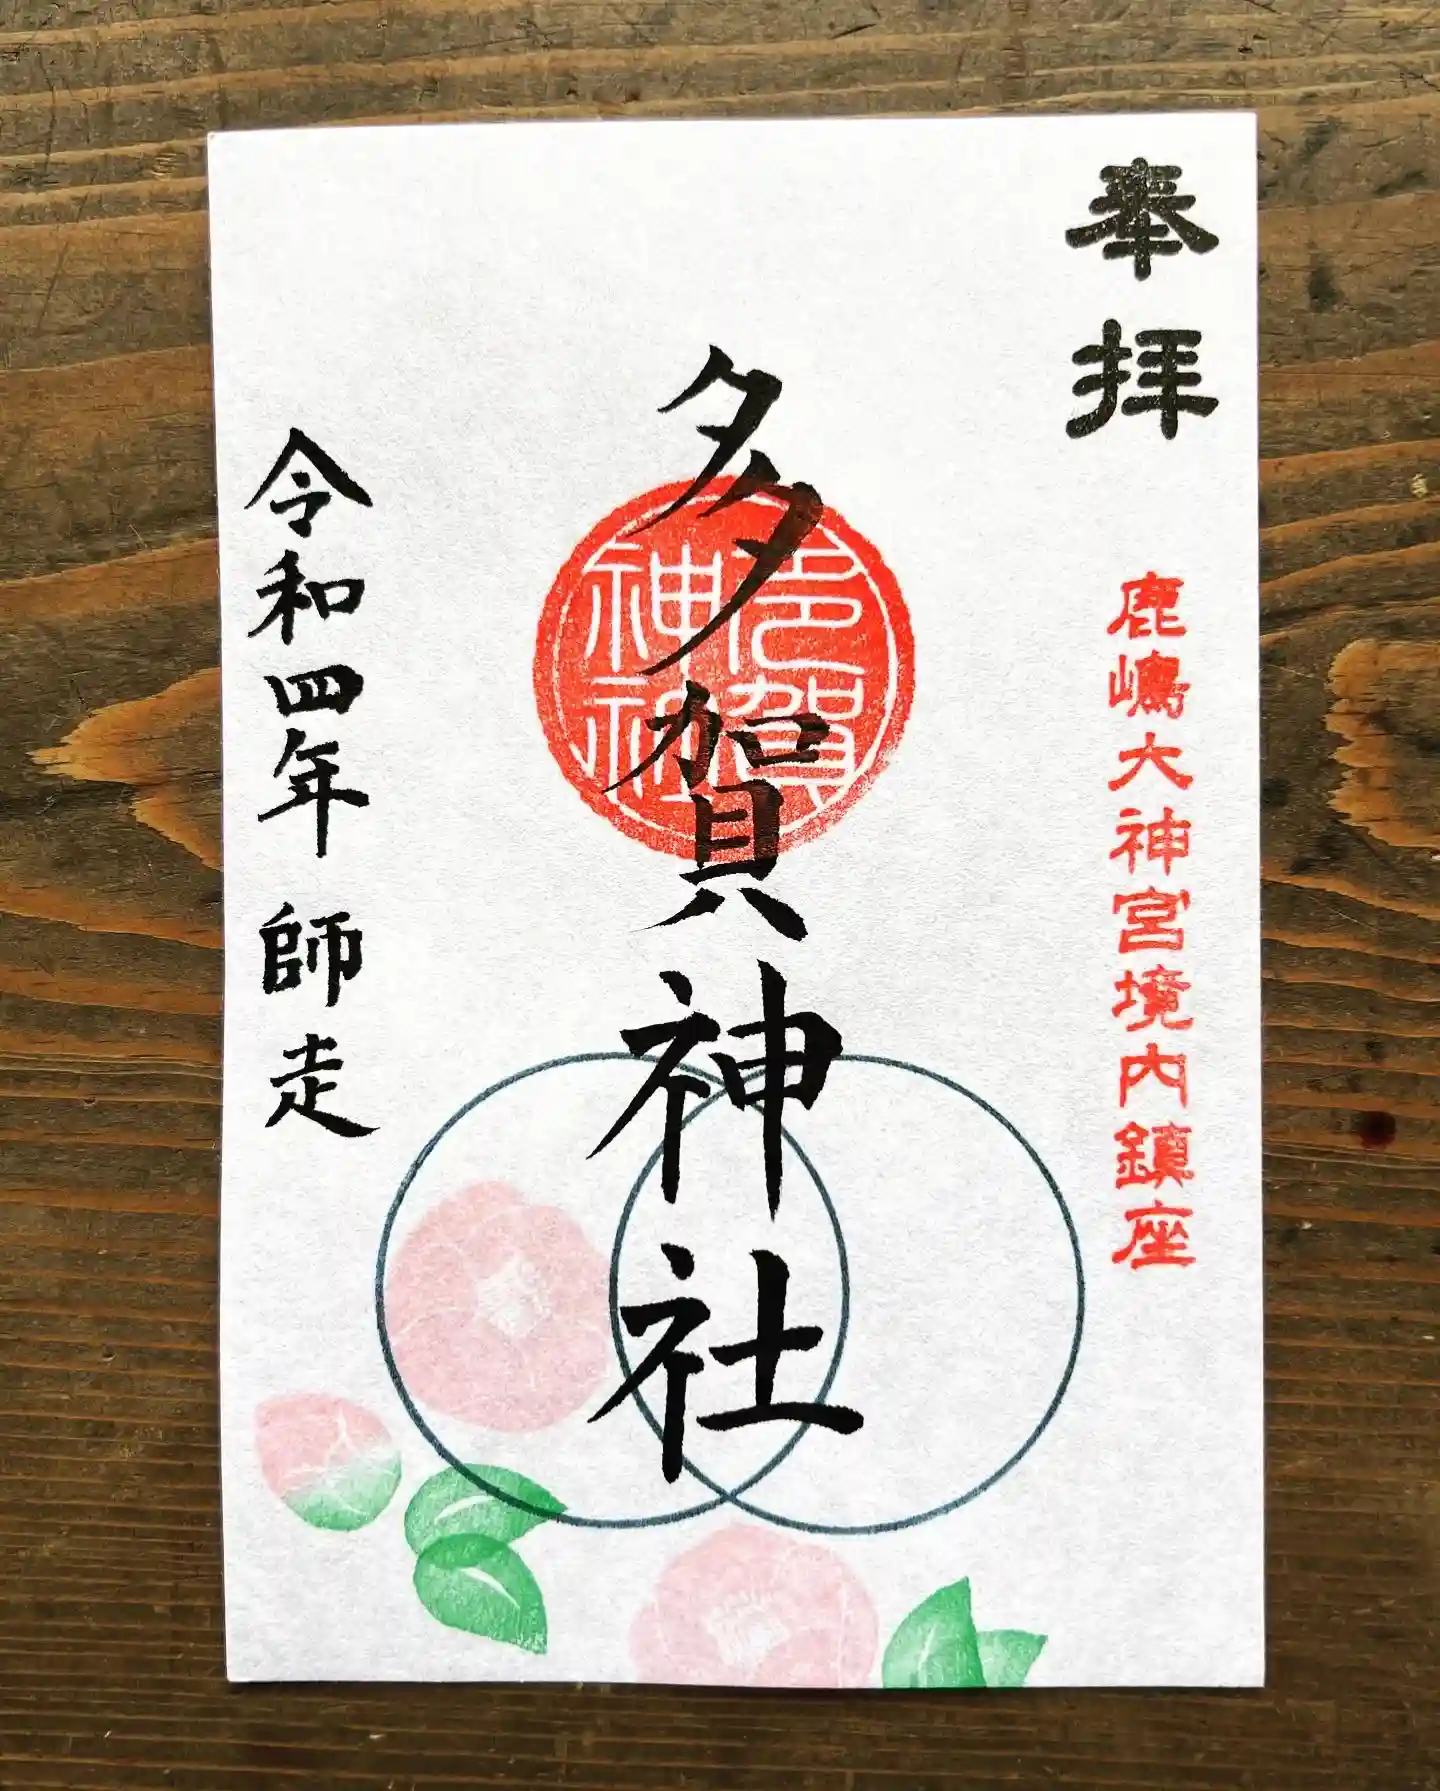 奉拝
鹿嶋大神宮境内鎮座
多賀神社
多賀
神社
令和四年 師走